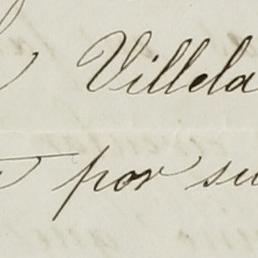 Villela
por su